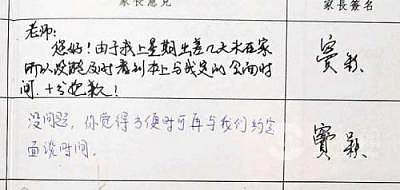 家长意见
家长签名
老师:
您好!由于我上星期出差几天未在家
所以没能及时看到本上与我定的会面时
间.十分抱歉!
窦颖
没问题,你觉得方便时可再与我们约定
面谈时间.
窦颖